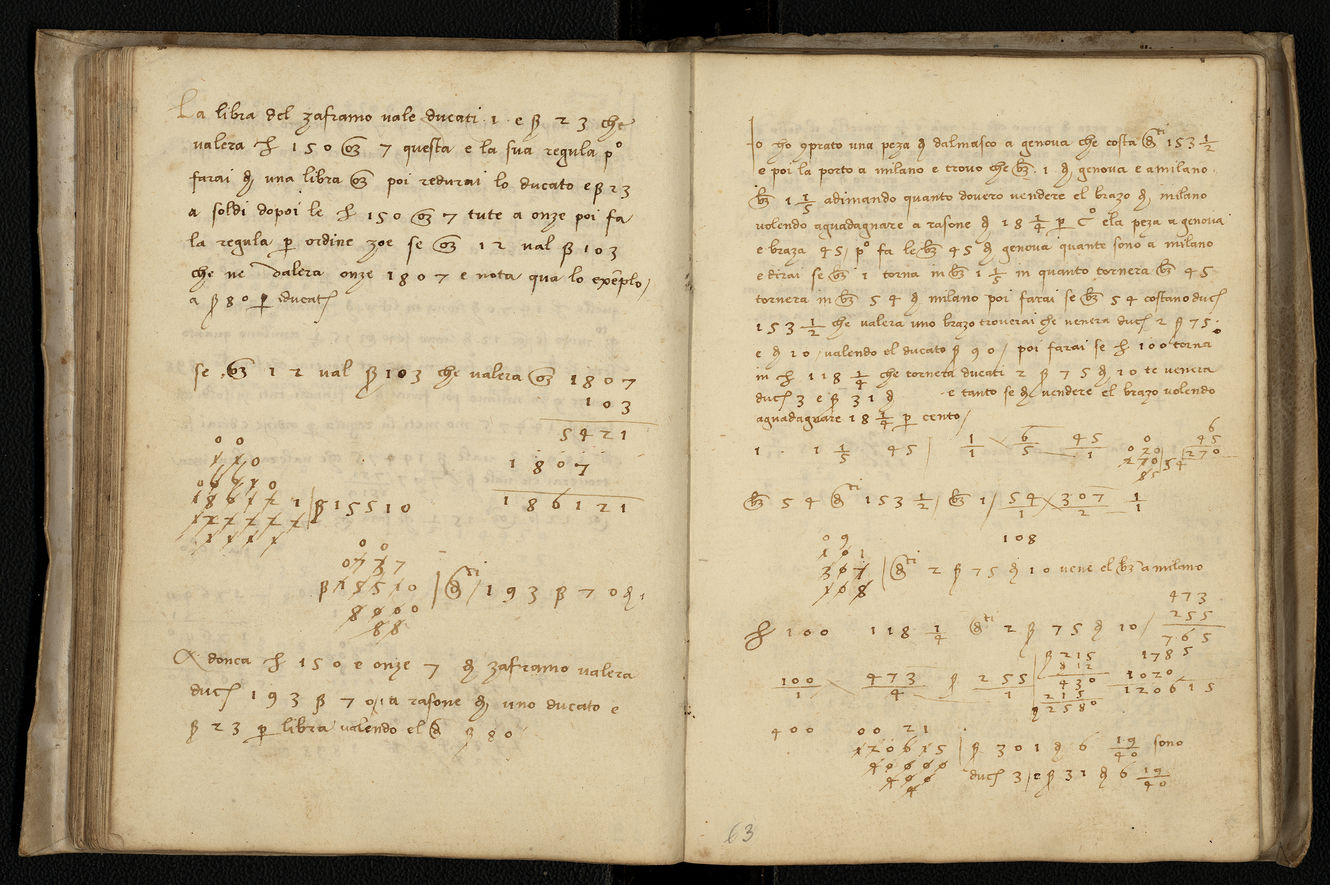 La libra del zaframo vale ducati 1 e ß 23 che
valera ℔ 150 oz 7 questa e la sua regula pº
farai di una libra oz poi redurai lo ducato e ß 23
a soldi dopoi le ℔ 150 oz 7 tute a onze poi fa
la regula p ordine zoe se oz 12 val ß 103
che ne valera onze 1807 e nota qua lo exẽplo
a ß 80 p ducati
se oz 12 val ß 103 che valera oz 1807
103
5421
1807
186121
ß 15510
ti 193 ß 70
Adonca ℔ 150 e onze 7 di zaframo valera
duc 193 ß 70 a rasone di uno ducato e
ß 23 p libra valendo el ß 80
Io ho 9prato una peza di dalmasco a genova che costa ti 153 1/2
e poi la porto a milano e trovo che bz 1 di genova e a milano
bz 1 1/5 adimando quanto dovero vendere el brazo di milano
volendo aguadagnare a rasone di 18 1/4 p Cº e la peza a genova
e braza 45 pº fa le bz 45 di genova quante sono a milano
e dirai se bz 1 torna in bz 1 1/5 in quanto tornera bz 45
tornera in bz 54 di milano poi farai se bz 54 costano duc
153 1/2 che valera uno brazo troverai che venera duc 2 ß 75
e di 10 valendo el ducato ß 90 poi farai se ℔ 100 torna
in ℔ 118 1/4 che tornera ducati 2 ß 75 di 10 te venera
duc 3 e ß 31 di e tanto se di vendere el brazo volendo
aguadagnare 18 1/4 p cento
1 1 1/5 45 1/1 6/5 45/1
6
45
270
54
bz 54 ti 153 1/2 bz 1 54/1 307/2 1/1
108
ti 2 ß 75 di 10 vene el bz a milano
473
℔ 100 118 1/4 ti 2 ß 75 di 10 255
765
ß 215 1785
812
100/1 473/4 ß 255/1 430 1020
215 120615
ß 2580
400 00 21
120615 ß 301 di 6 19/40 sono
duc 3 e ß 31 di 6 19/40
63